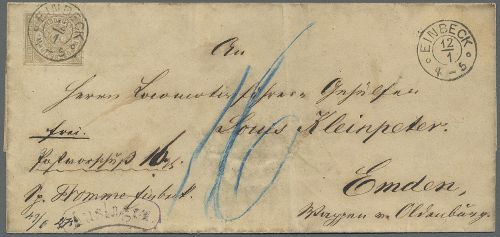 EINBECK
12/1
4-5
EINBECK
12
1
4-5
An
Herrn Locomotivführer Gehülfen
Louis Kleinpeter.
frei.
Postvorschuß 16
Emden,
Wappen v. Oldenburg.